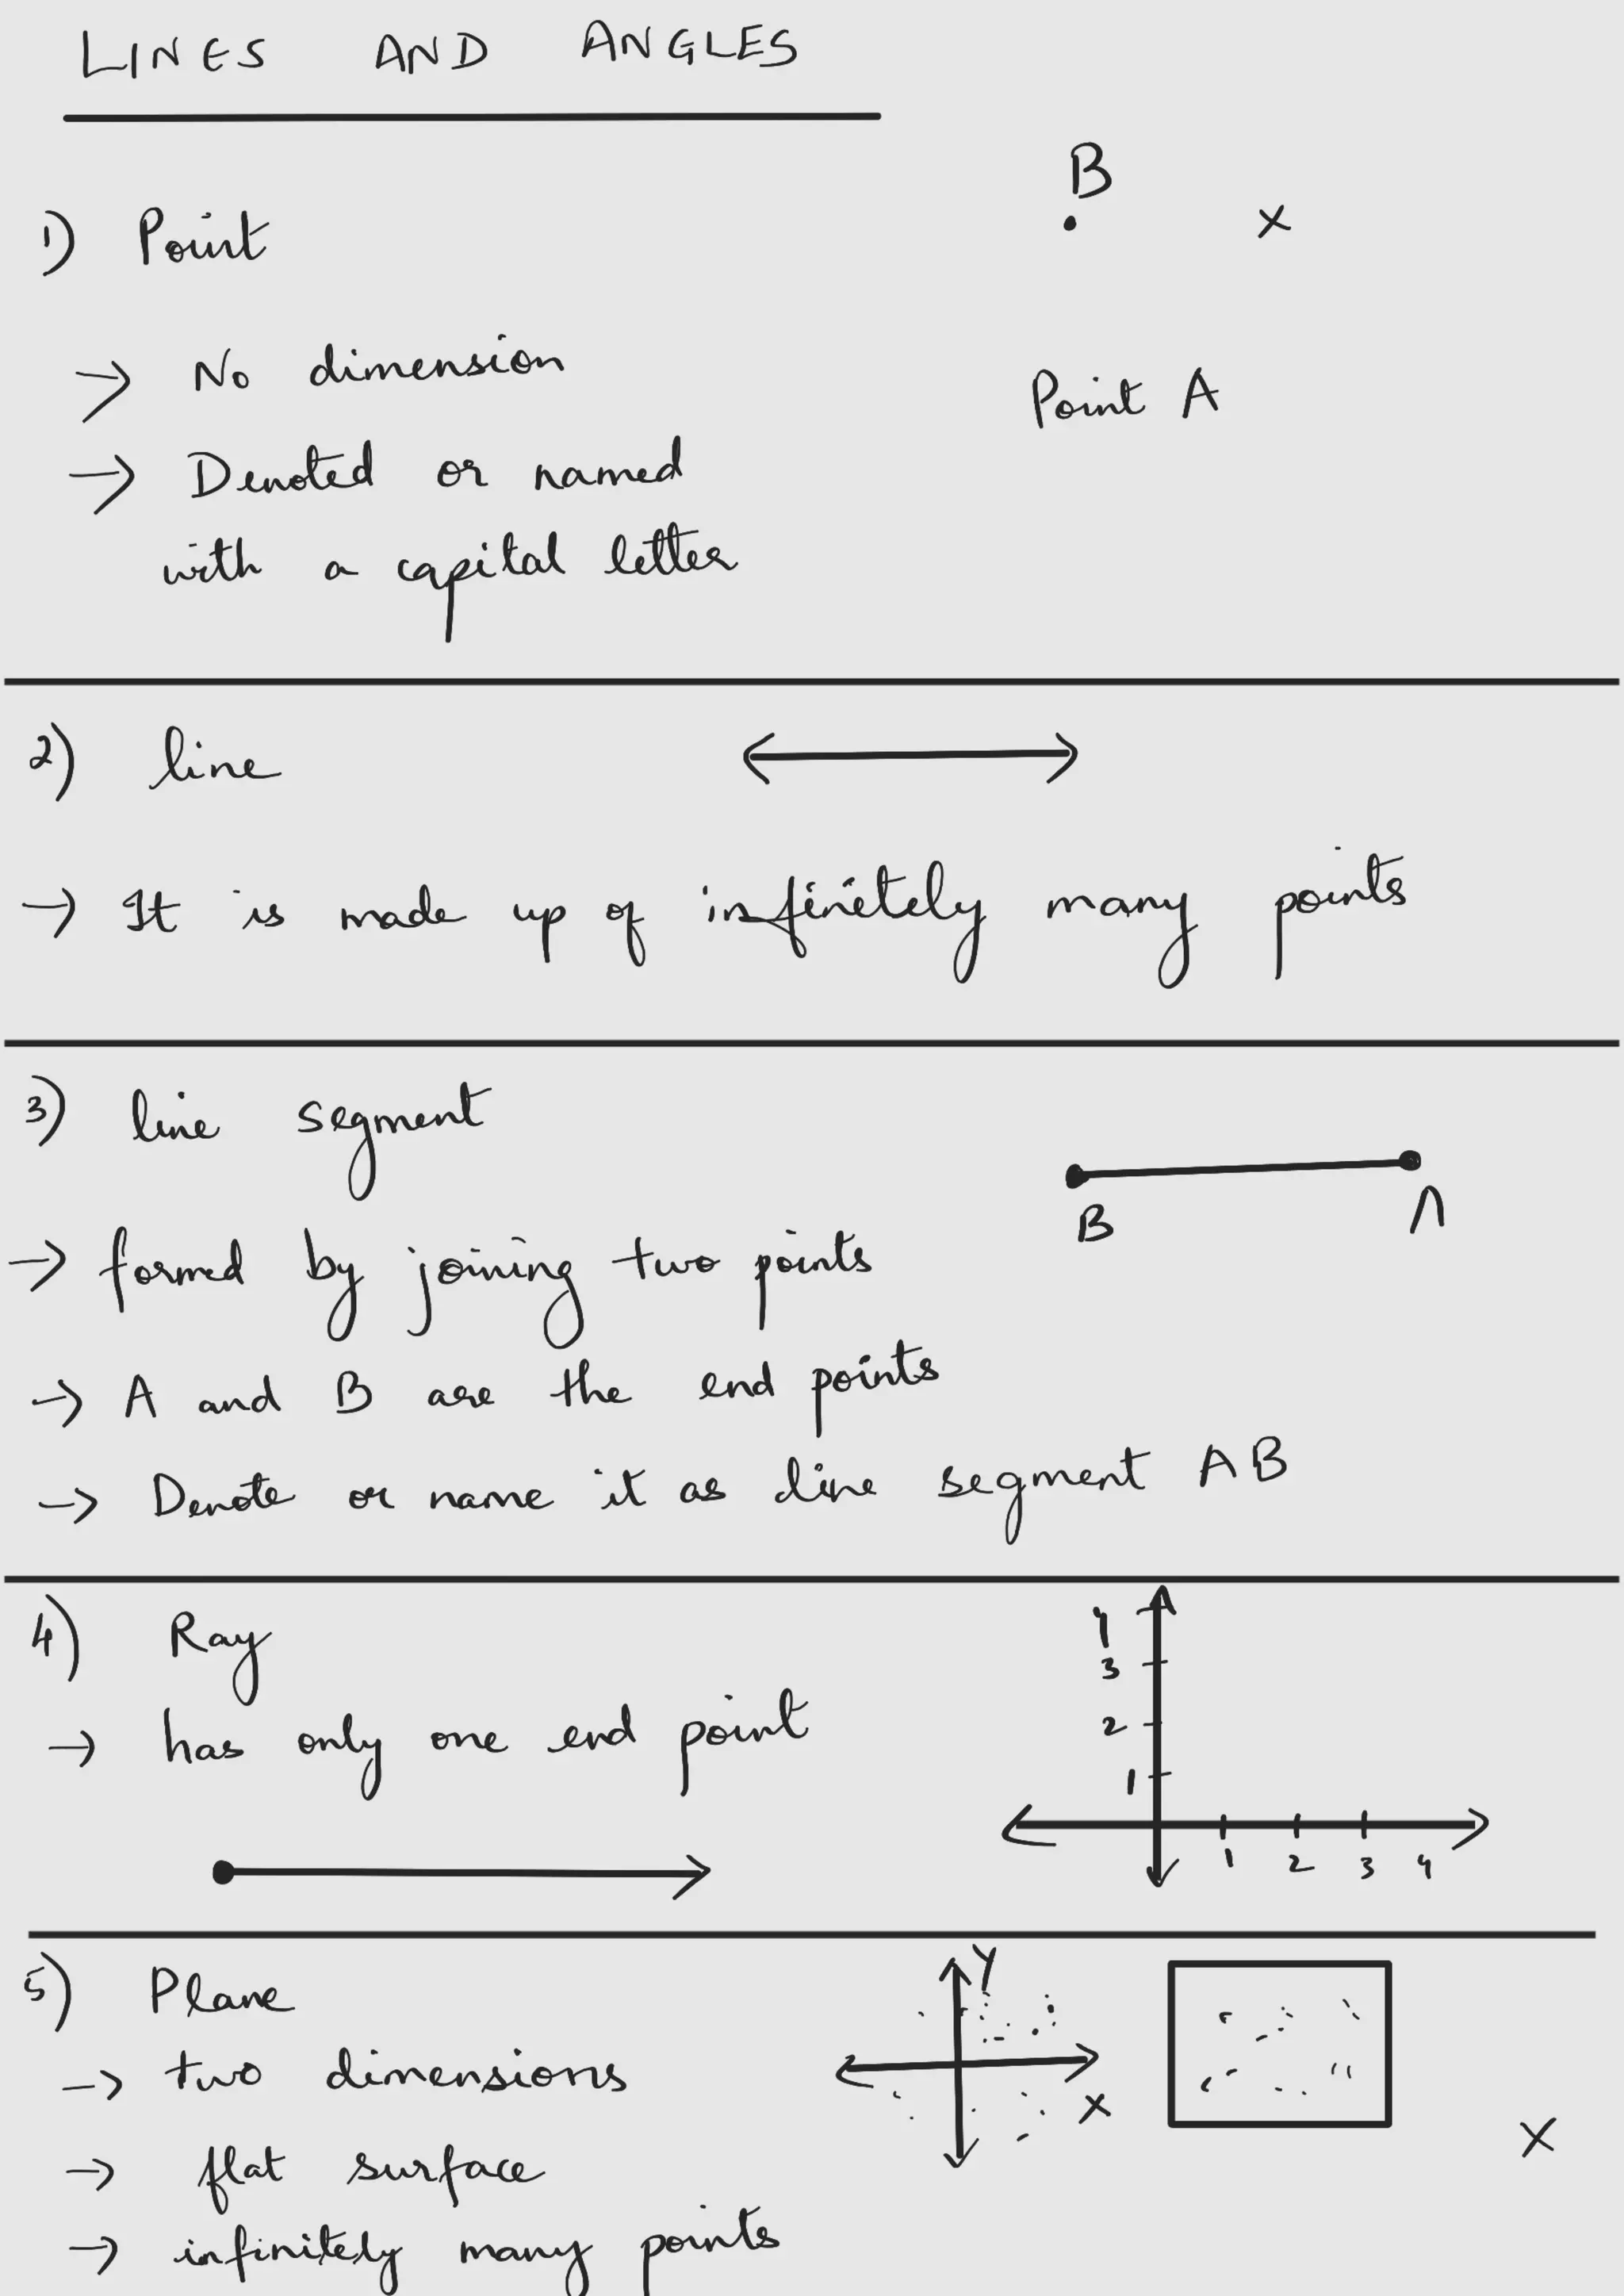 LINES AND ANGLES
B
x
1) Point
→ No dimension
Point A
→ Denoted or named
with a capital letter
2) line
→ It is made up of infinitely many points
3) line segment
B
→ formed by joining two points
→ A and B are the end points
→ Denote or name it as line segment AB
4) Ray
3
→ has only one end point
2
1
1 2 3 4
5) Plane
Y
→ two dimensions
X
X
→ flat surface
→ infinitely many points